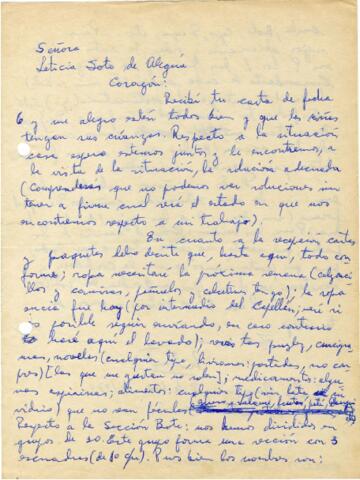 Señora
Leticia Soto de Alegría
Corazón:
Recibí tu carta de fecha
6 y me alegro estén todos bien y que los niños
tengan sus crianzas. Respecto a la situación
casa espero estemos juntos y le encontremos, a
la vista de la situación, la solución adecuada
(Comprenderás que no podemos ver soluciones sin
tener a firme cual será el estado en que nos
encontremos respecto a un trabajo).
En cuanto a la recepción cartas
y paquetes debo decirte que, hasta aquí, todo con
forme; ropa necesitaré la próxima semana (calzonci
llos y camisas, pañuelos y calcetines tengo); la ropa
sucia fue hoy (por intermedio del Capellán, veré si
es posible seguir enviando, en caso contrario
haré aquí el lavado);
novelas (cualquier tipo, livianas: portadas, no
) [las que me gustan no salen]; medicamentos: algu
nas aspirinas; alimentos: cualquier tipo (sin lata
vidrio) que no sean
Respecto a la Sección Bote: nos hemos divididos en
grupos de 30. Este grupo forma una sección con 3
escuadras (de 10 c/u). Pues bien los nombres son: